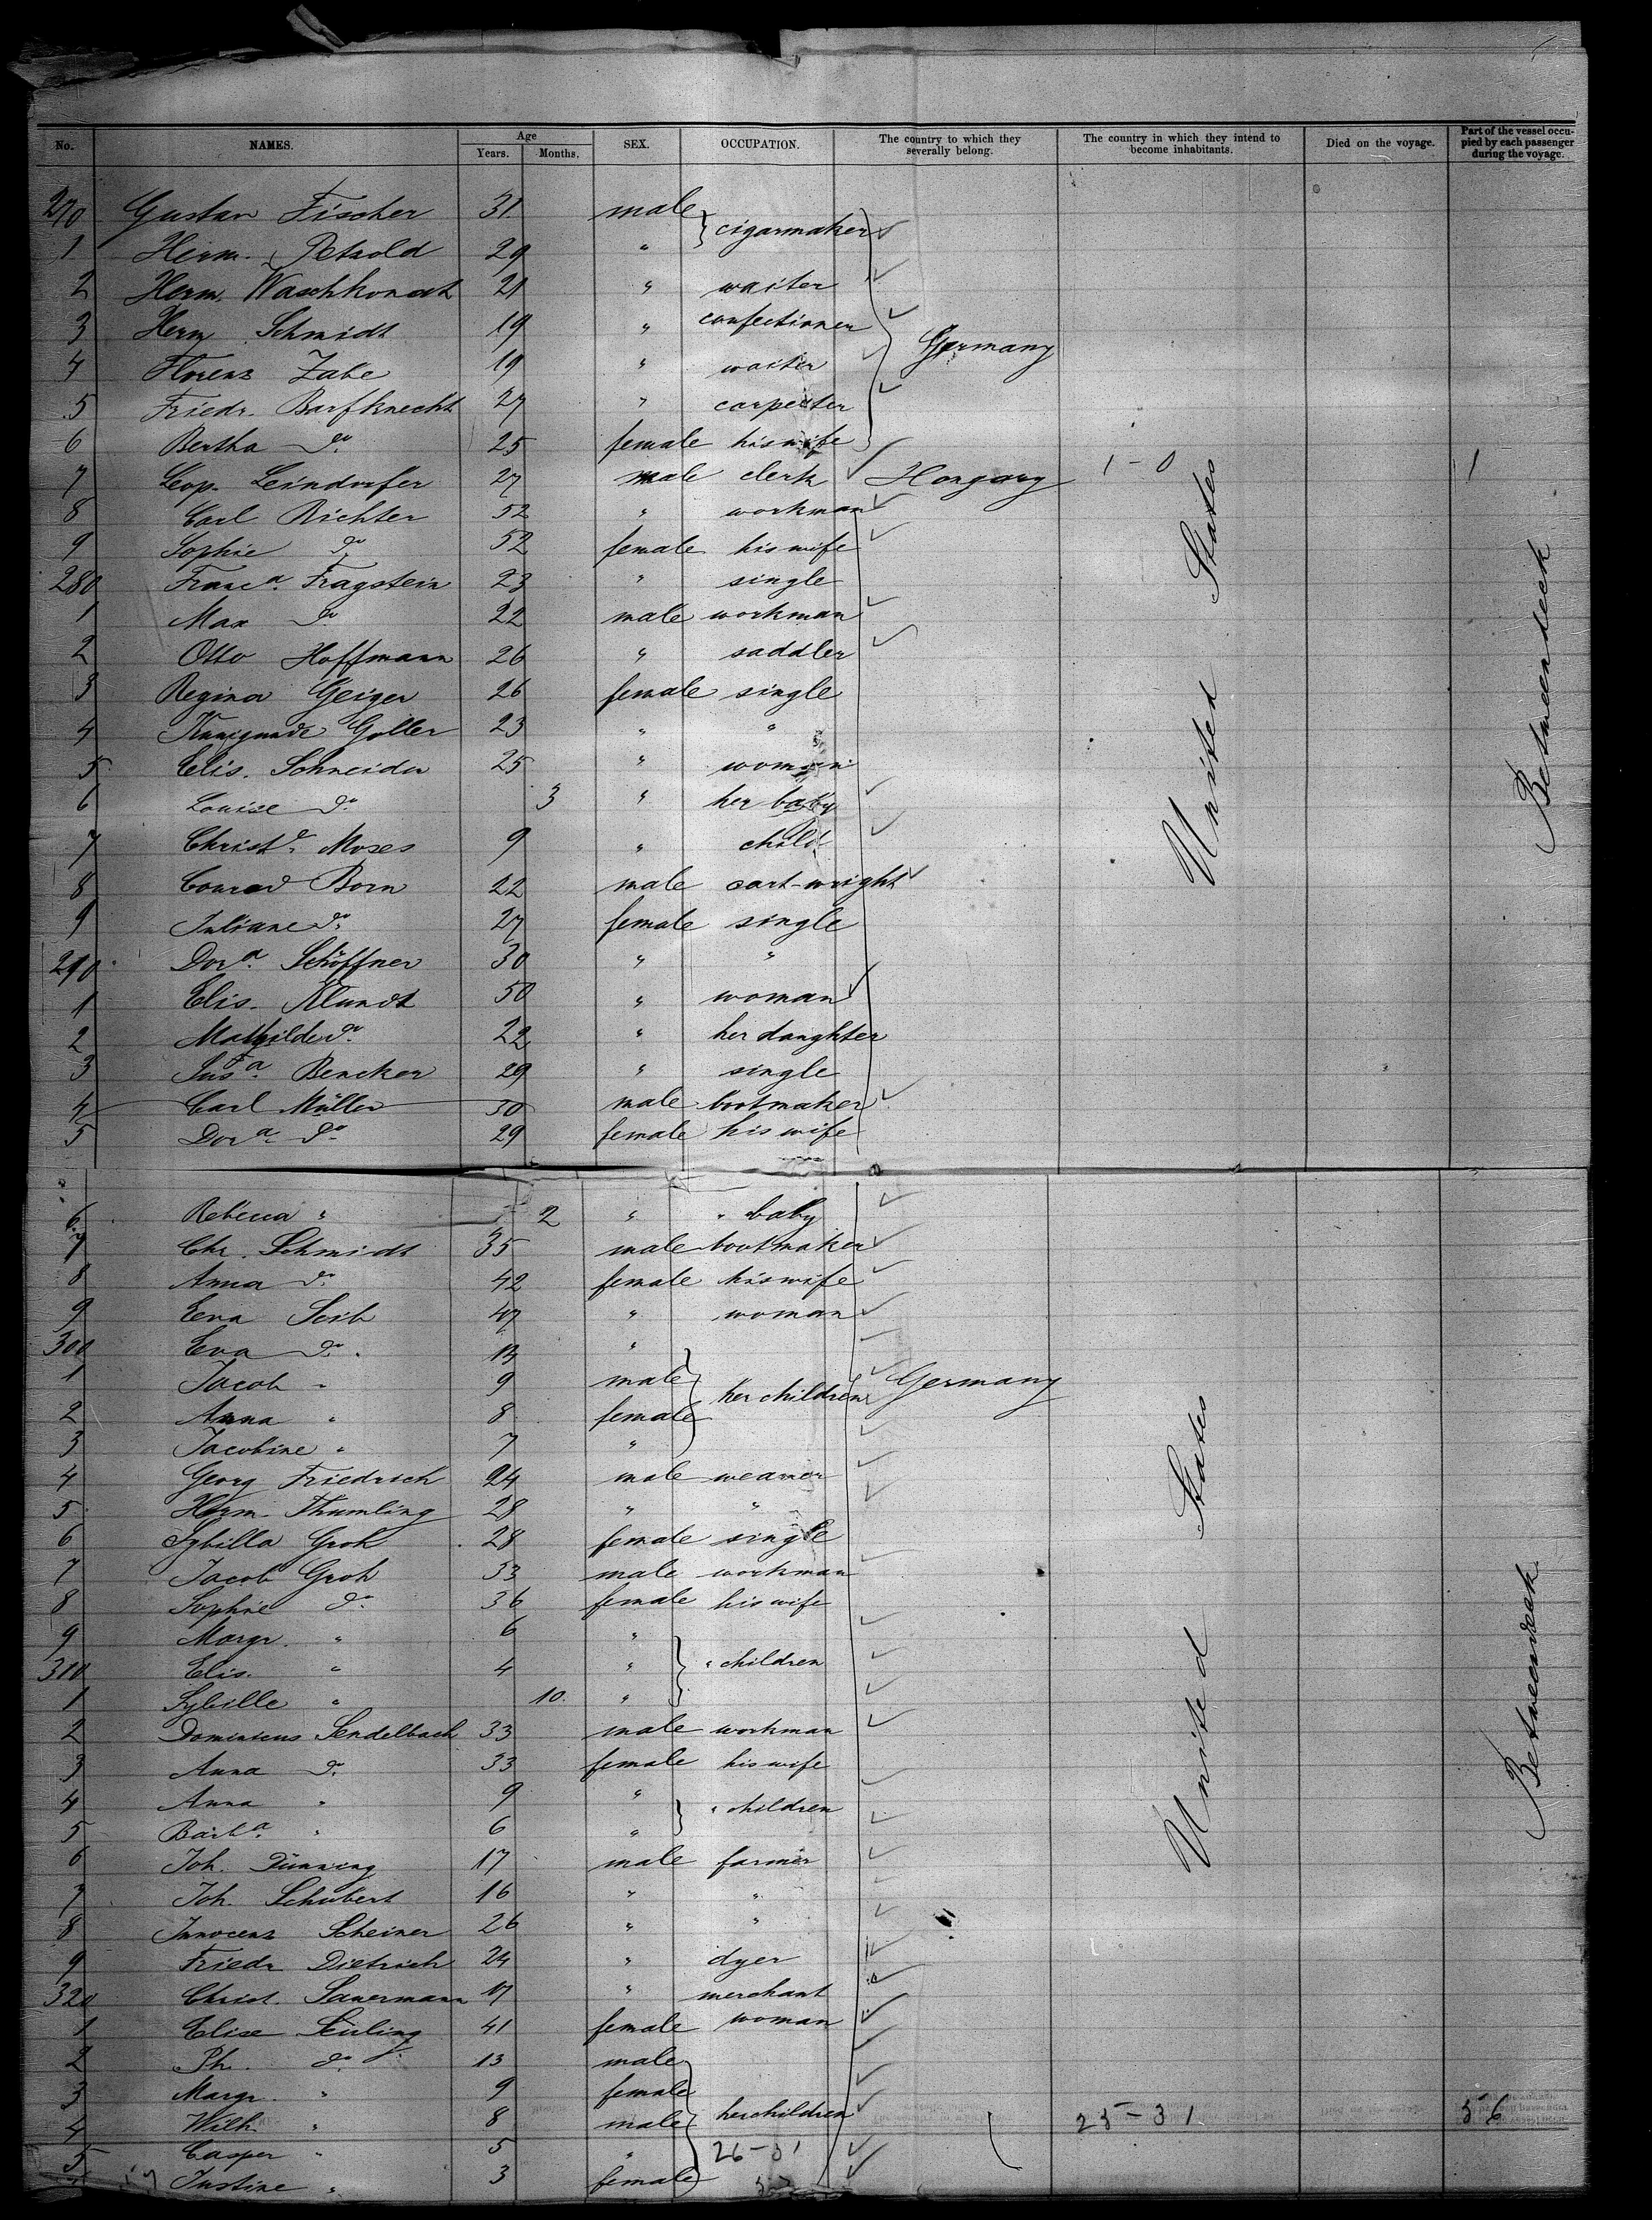 No. NAMES. Age Years. Months. SEX. OCCUPATION. The country to which they severally belong. The country in which they intend to become inhabitants. Died on the voyage. Part of the vessel occupied by each passenger during the voyage.
270 Gustav Fischer 31 male cigarmaker
1 Herm. Petzold 29 "
2 Herm. Waschkonat 21 " waiter
3 Herm. Schmidt 19 " confectinner Germany
4 Florenz Zabe 19 " waiter
5 Friedr. Barfknecht 27 " carpenter
6 Bertha do 25 female his wife
7 Leop. Leindorfer 27 male clerk Hongary 1-0 1
8 Carl Richter 52 " workman
9 Sophie do 52 female his wife
280 Franca. Fragstein 23 " single
1 Max do 22 male workman
2 Otto Hoffmann 26 " saddler
3 Regina Geiger 26 female single
4 Kunigunde Goller 23 " "
5 Elis. Schneider 25 " woman
6 Louise do 3 " her baby United States Betweendeck
7 Christe. Moses 9 " child
8 Conrad Born 22 male cart-wright
9 Juliane do 27 female single
290 Dora. Schöffner 30 " "
1 Elis. Klundt 50 " woman
2 Mathilde do 22 " her daughter
3 Susa. Bencker 29 " single
4 Carl Müller 30 male bootmaker
5 Dora. do 29 female his wife
6 Rebecca " 2 " " baby
7 Chr. Schmidt 35 male bootmaker
8 Anna do 42 female his wife
9 Eva Seib 47 " woman
300 Eva do 13 "
1 Jacob " 9 male her children Germany
2 Anna " 8 female
3 Jacobine " 7 "
4 Georg Friedrich 24 male weaver
5 Herm. Thumling 28 " "
6 Sybilla Groh 28 female single
7 Jacob Groh 33 male workman
8 Sophie do 36 female his wife
9 Margr. " 6 "
310 Elis. " 4 " " children
1 Sybille " 10 " United States Betweendeck
2 Dominicus Sendelbach 33 male workman
3 Anna do 33 female his wife
4 Anna " 9 " " children
5 Barba. " 6 "
6 Joh. Dünning 17 male farmer
7 Joh. Schubert 16 " "
8 Innocenz Scheiner 26 " "
9 Friedr Dietrich 24 " dyer
320 Christ. Sauermann 17 " merchant
1 Elise Seuling 41 female woman
2 Ph. do 13 male
3 Margr. " 9 female
4 Wilh. " 8 male her children 25-31 56
5 Casper " 5 " 26-31
Justine " 3 female